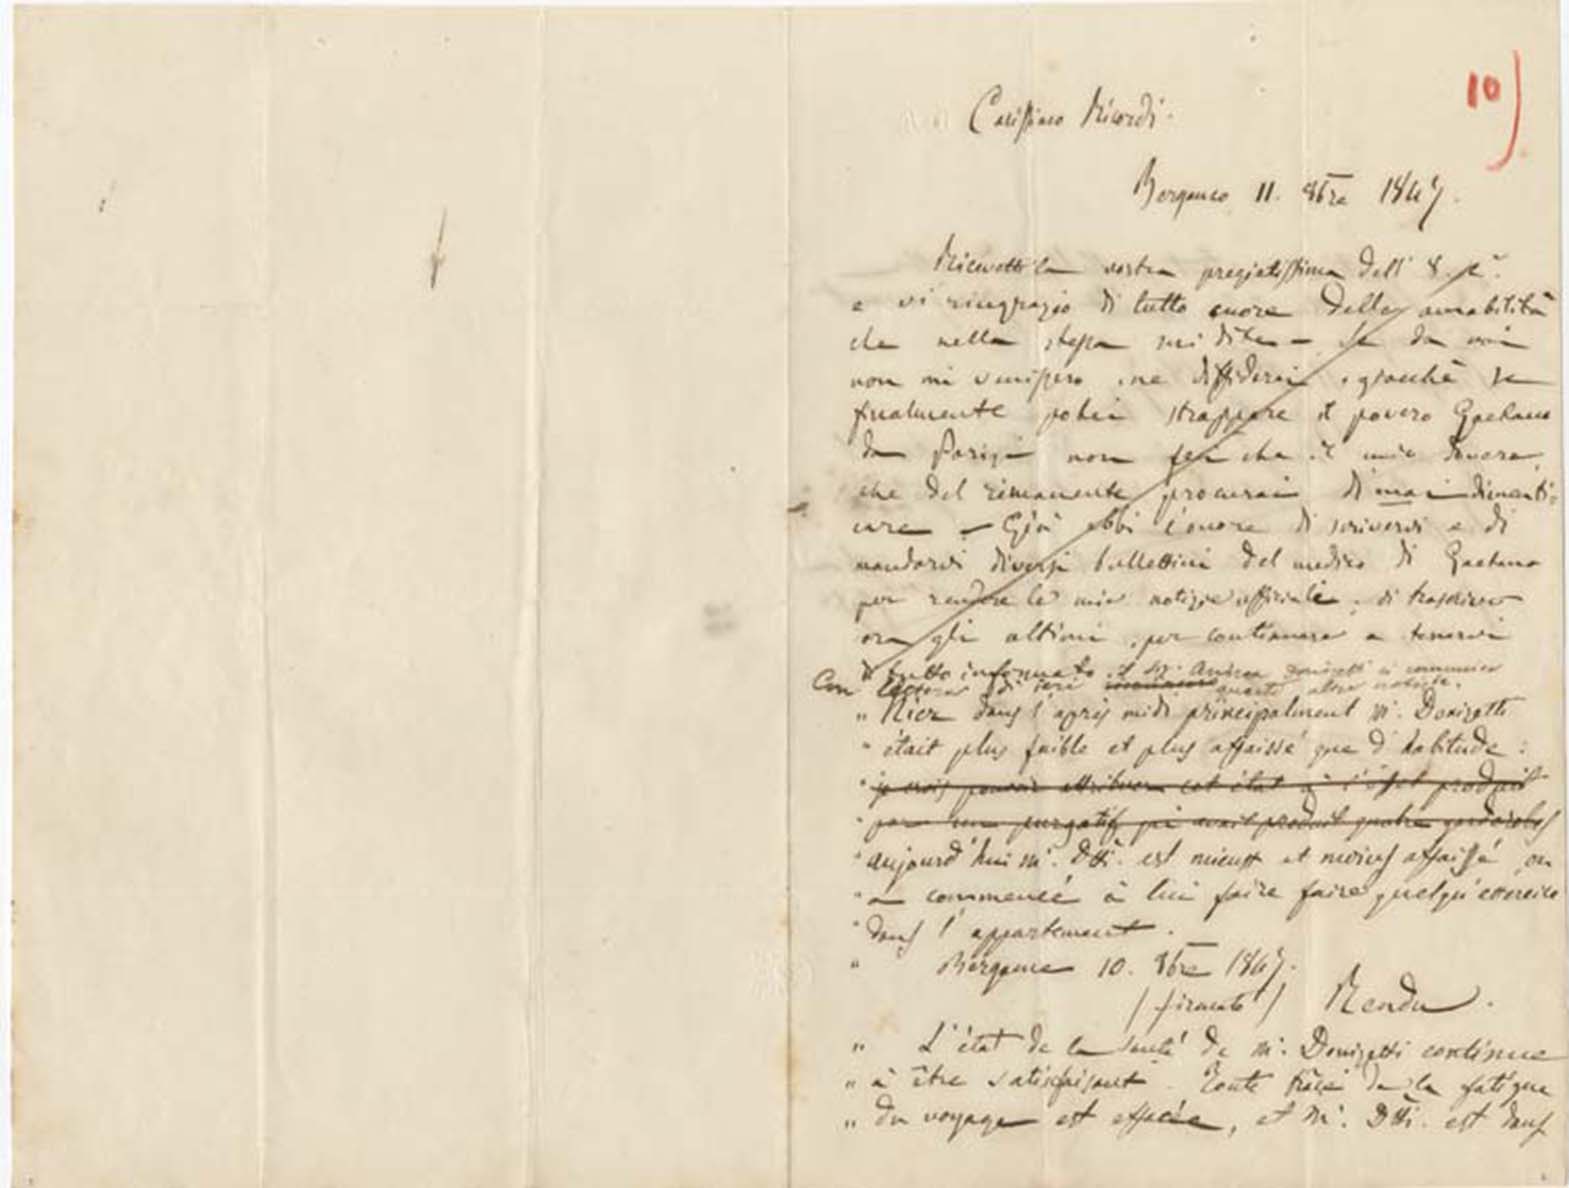 10)
Carissimo Ricordi.
Bergamo 11. 8bre 1847.
Ricevetti la vostra pregiatissima dell' 8.
e vi ringrazio di tutto cuore delle amabilità
che nella stessa mi dite – Se da voi
non mi venissero, ne diffiderei, giacchè se
finalmente potei strappare il povero Gaetano
da Parigi non feci che il mio dovere,
che del rimanente procurai di mai dimenti-
care – Già ebbi l'onore di scrivervi e di
mandarvi diversi bullettini del medico di Gaetano
per rendere le mie notizie officiali, vi trascrivo
ora gli ultimi, per continuare a tenervi
di tutto informato. il Sig. Andrea Donizetti ci comunica
Con lettera di ieri queste altre notizie.
" Hier dans l'après midi principalment Mr. Donizetti
" était plus faible et plus affaissé que d'habitude:
" je crois pouvoir attribuer cet état à l'effet produit
" par un purgatif qui avait produit quatre garderobes
" aujourd'hui Mr. Dtti. est mieux et moins affaissé on
" a commencé à lui faire faire quelqu'exercice
" dans l'appartement.
" Bergame 10. 8bre 1847.
/firmato/ Rendu.
" L'état de la santé de Mr. Donizetti continue
" à être satisfaisant. Toute trace de la fatigue
" du voyage est effacée, et Mr. Dtti. est dans